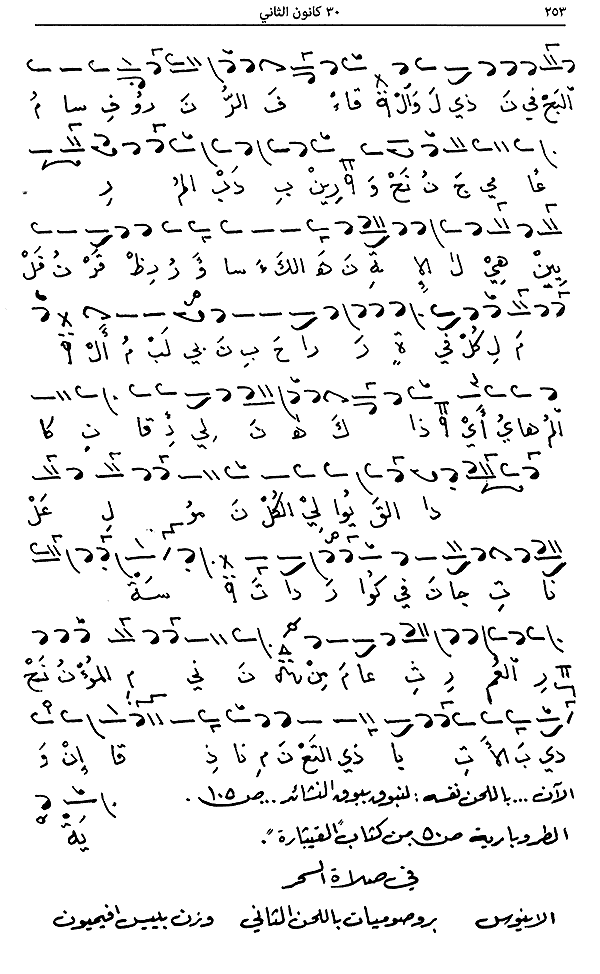 ٢٥٣ ٣٠ كانون الثاني
في نَ ذي لَ وَ قاءْ فَ الرُّ نَ رو فِ سا مُ
عا مي جَ نُ نَحْ وَ رينْ بِ دَبْ المُ رِ
يينْ هِيْ لا الإِ ةِ نَ هَ الكَ ءَ سا وَ
مَ لِ كُلْ في ةٍ رَ را حَ بِ نَ بي لَبْ مُ
المُ هايُ أَيْ ذا كَ هَ نَ لي ذِ قا نِ كا
دا القَ يُوا لِيْ الكُلْ نَ مُو لِ عَلْ
نا تِ جا نَ في كُوا رَ دا تَ سَةْ
رِ العُمْ رِ ثِ عا مَ مِنْ نَ ني مِ المُؤْ نُ نَحْ
دي بَ الأَ تِ يا ذي التَعْ نَ مِ نا ذِ قا إِنْ وَ
يَةْ
الآن ... باللحن نفسه : لنبوق ببوق النشائد ... ص ١٠٥ .
الطروبارية ص ٥٠ من كتاب "القيثارة".
في صلاة السحر
الاينوس بروصوميات باللحن الثاني وزن بلبيس افيميون